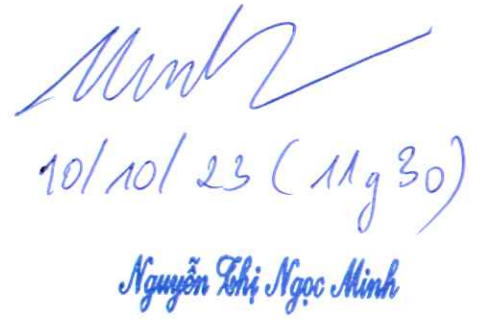 Minh
10/10/23 (11g30)
Nguyễn Thị Ngọc Minh